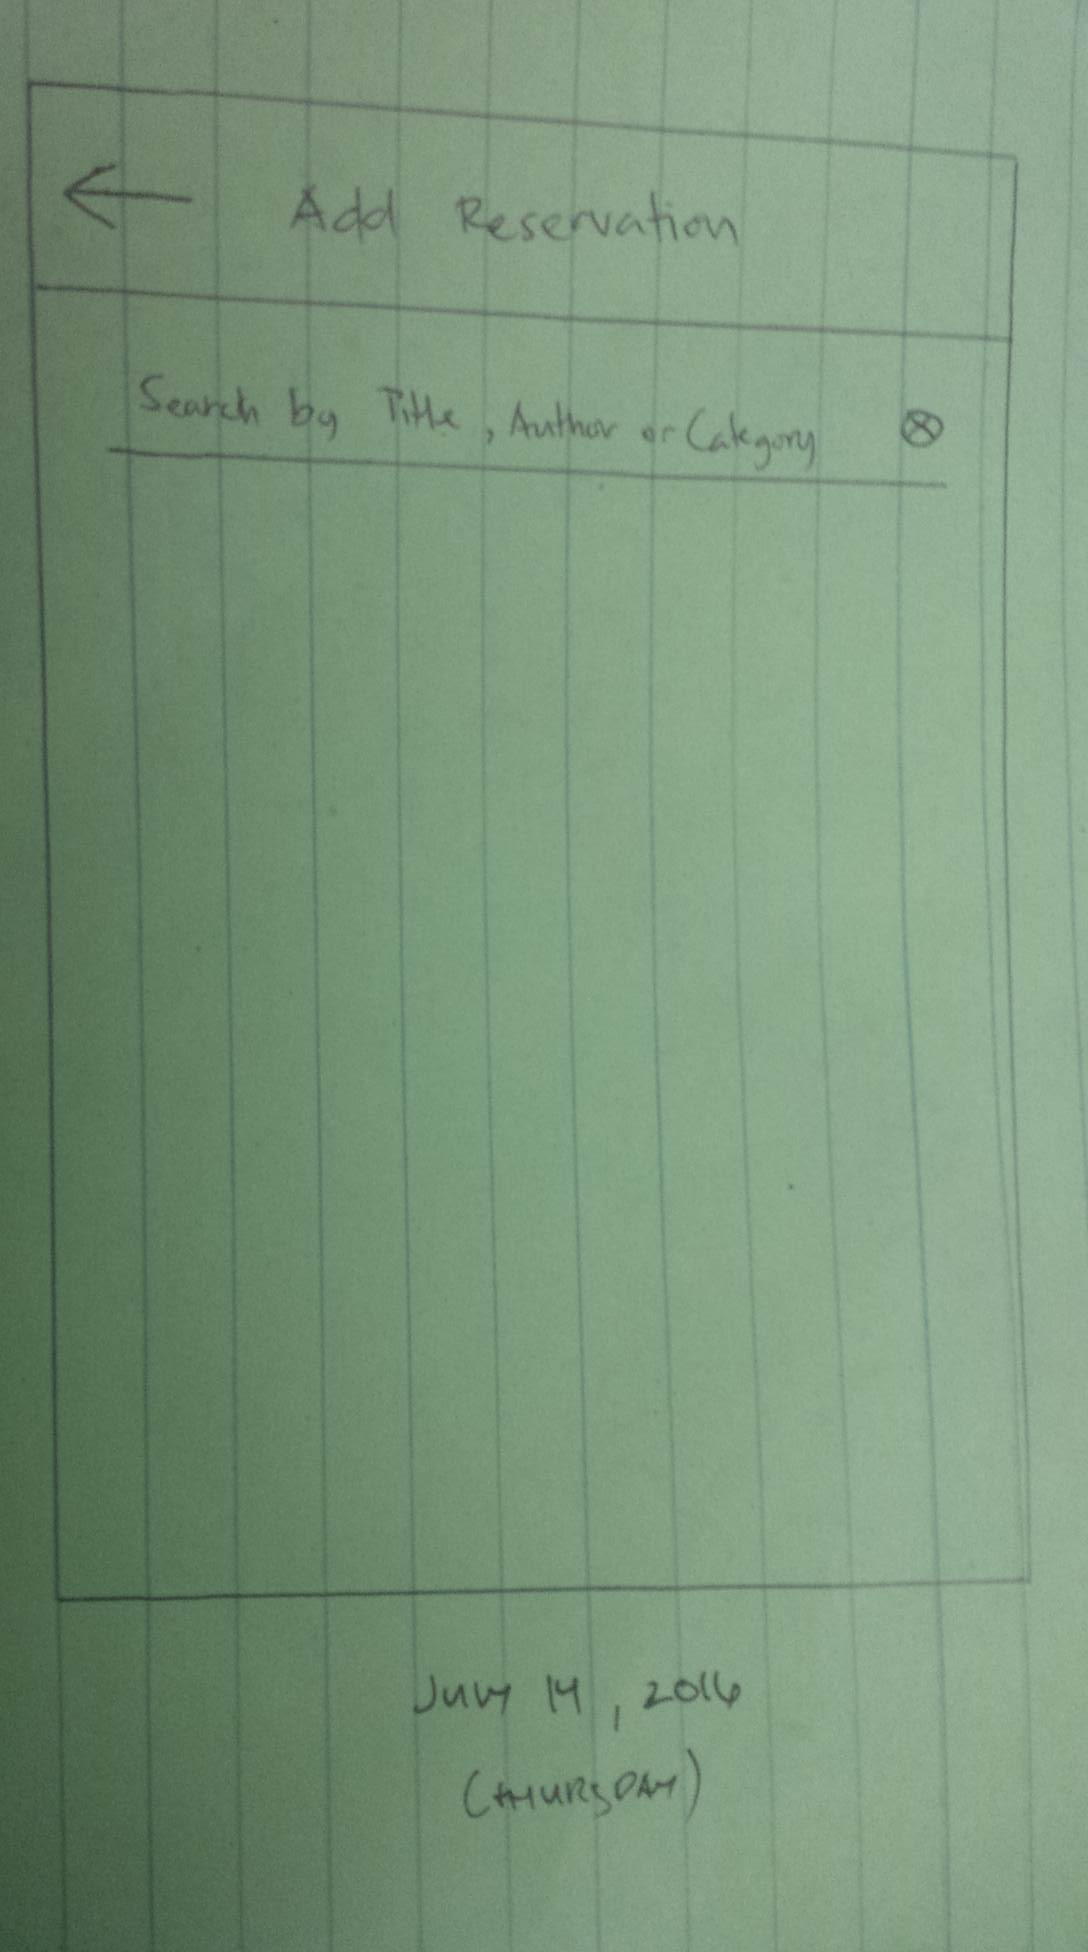 Add Reservation
Search by Title, Author or Category
JULY 14, 2016
(THURSDAY)